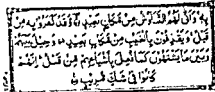 بِهِ وَأَنَّىٰ لَهُمُ التَّنَاوُشُ مِنْ مَكَانٍ بَعِيدٍ وَقَدْ كَفَرُوا بِهِ مِنْ
قَبْلُ وَيَقْذِفُونَ بِالْغَيْبِ مِنْ مَكَانٍ بَعِيدٍ وَحِيلَ بَيْنَهُمْ
وَبَيْنَ مَا يَشْتَهُونَ كَمَا فُعِلَ بِأَشْيَاعِهِمْ مِنْ قَبْلُ إِنَّهُمْ
كَانُوا فِي شَكٍّ مُرِيبٍ